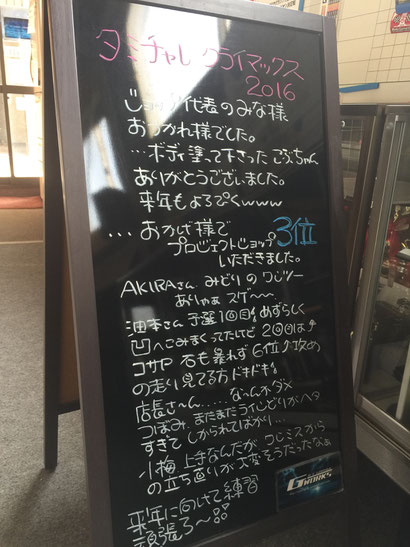 タミチャレ クライマックス
2016
代表のみな様
おつかれ様でした。
…ボディ塗って下さった こぶちゃん
ありがとうございました。
来年もよろぴくwww
… おかげ様で
プロジェクトショップ 3位
いただきました。
AKIRAさん みどりの ワンツー
ありゃぁ スゲ〜〜
油本さん 予選1回目 めずらしく
凹へこみまくってたけど 2回目は↑
コサP 石も暴れず 6位 攻め
の走り見てる方 ドキドキ
店長さ〜ん…… な〜んか ダメ
つぼみ、まだまだライン どりがヘタ
すぎて しかられてばかり…
小梅 上手なんだが ワンミスから
の立ち直りが大変そうだったなぁ
来年に向けて練習
頑張ろ〜
G WORKS